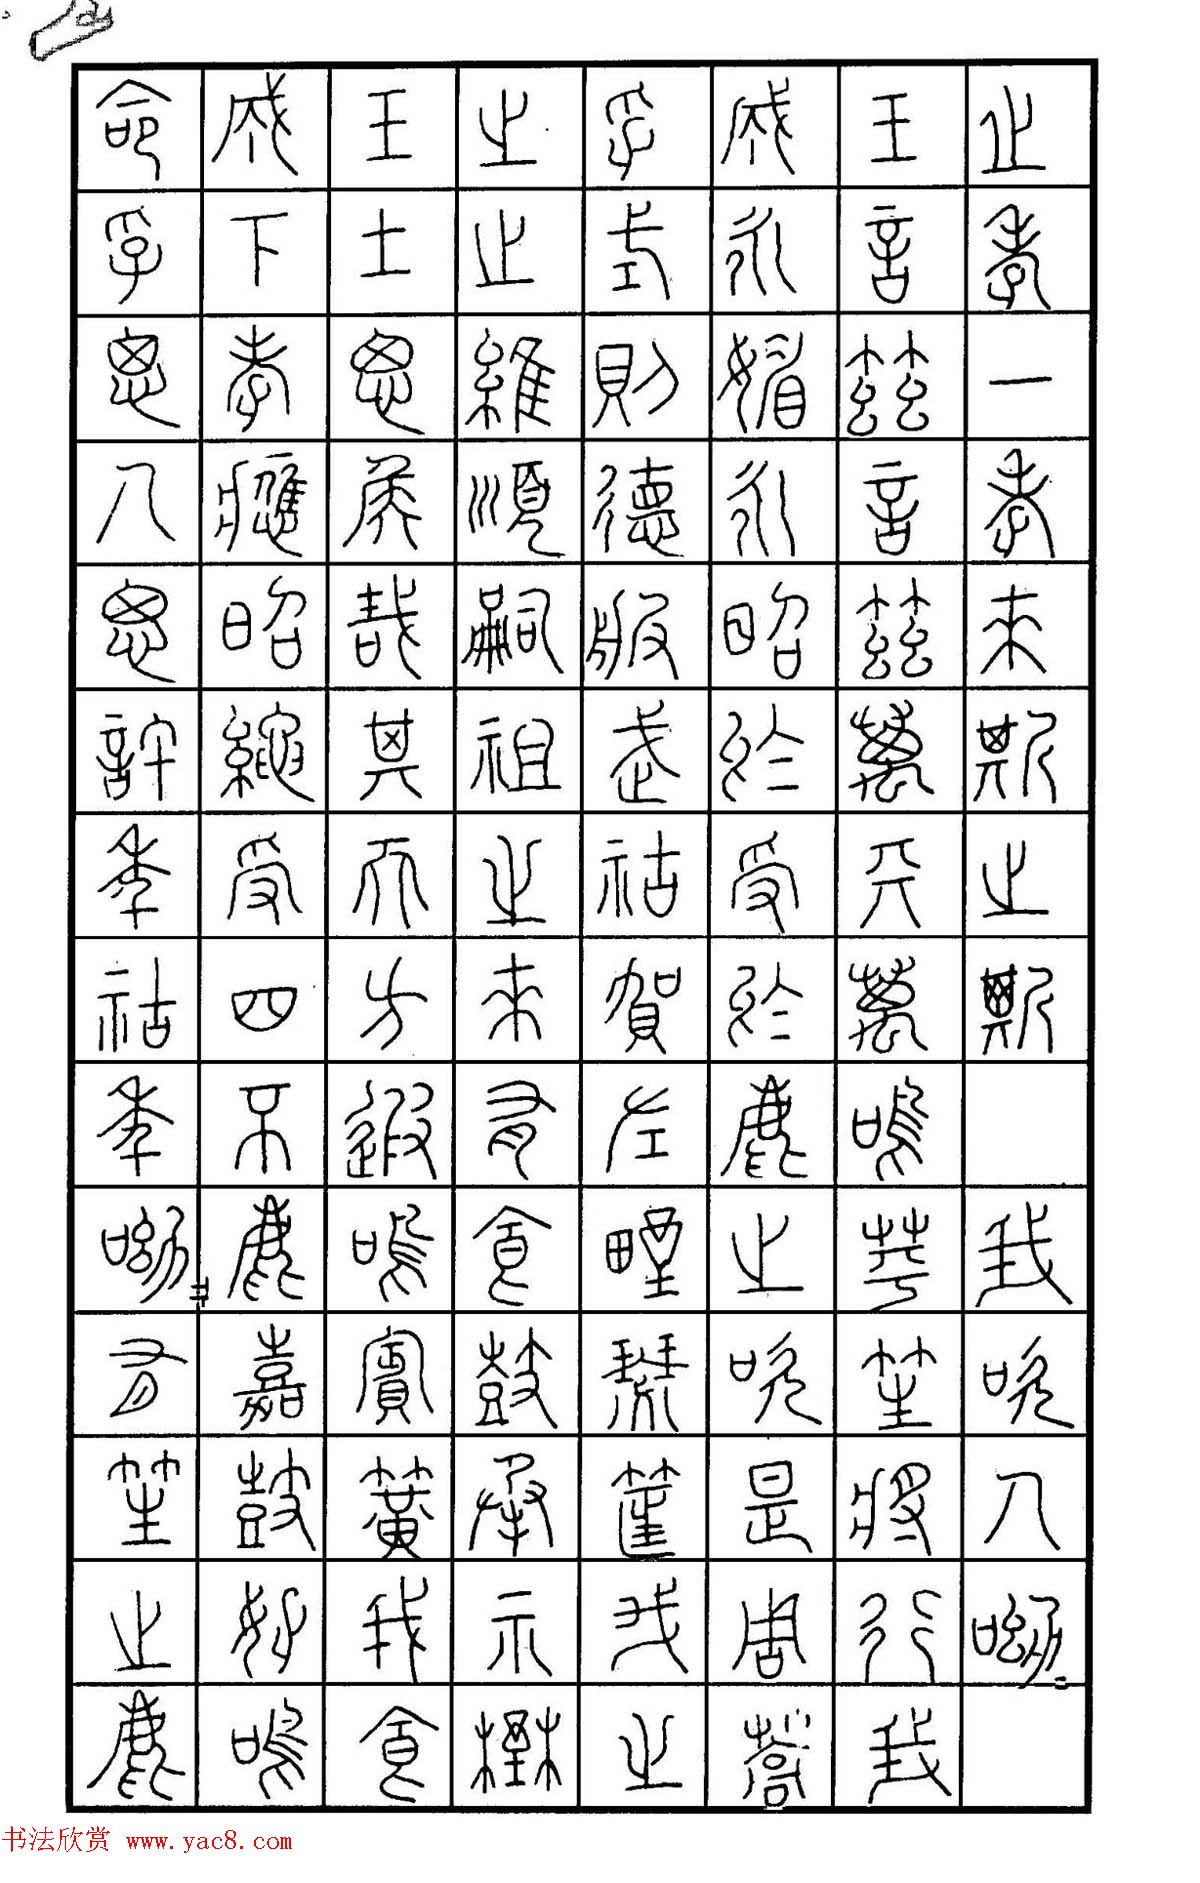 命成王之孚成王之
孚下土之式永言孝
思孝思維則媚茲一
人應侯順德永言孝
思昭哉嗣服昭茲來
許繩其祖武於萬斯
年受天之祜受天之
祜四方來賀於萬斯
年不遐有左鹿鳴
呦=鹿鳴食野之苹我
有嘉賓鼓瑟吹笙吹
笙鼓簧承筐是將人
之好我示我周行呦=
鹿鳴食野之蒿我
书法欣赏 www.yac8.com